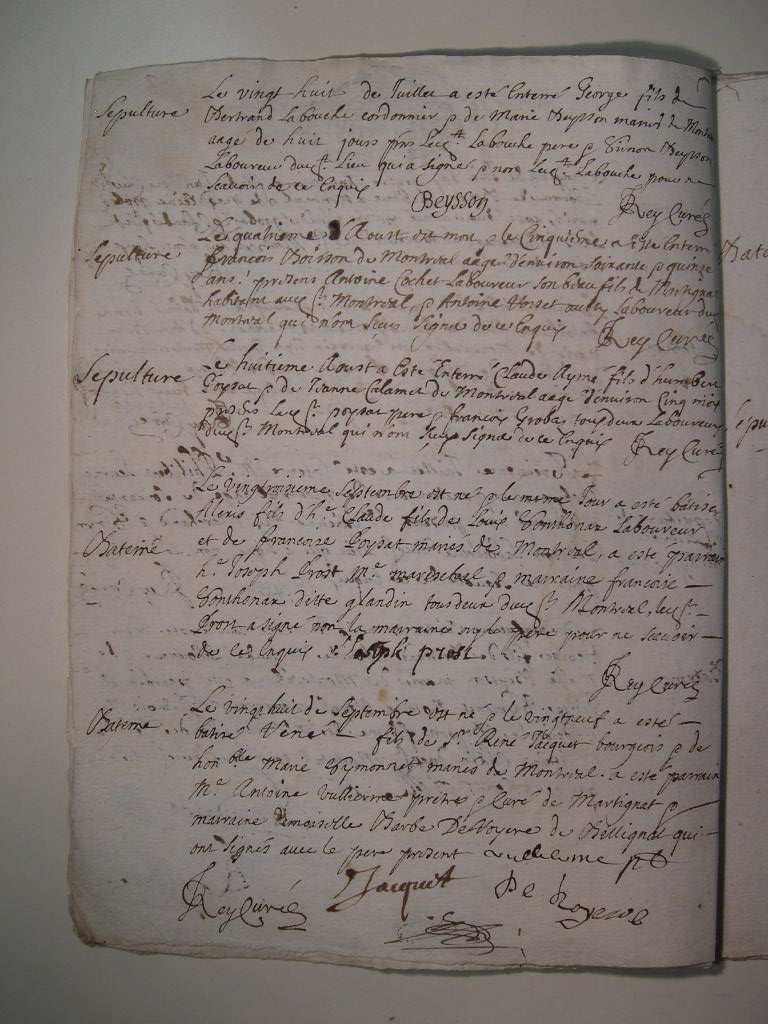 Sepulture
Le vingt huit de Juillet a esté Enterré George fils de
Bertrand Labouche cordonnier & de Marie Beysson mariés de Montreal
aagé de huit jours pns Led.t Labouche pere & Beysson
Laboureur dud.t Lieu qui a signé & non led.t Labouche pour ne
Scavoir de ce Enquis
Beysson
Rey Curé
Sepulture
Le quatrieme d'Aoust est mort & le Cinquieme a esté Enterré
francois Boisson de Montreal aagé d'environ soixante & quinze
ans presens Antoine Cochet Laboureur son beau fils de Martignat
habitant aud.t Montreal, & Antoine aussy Laboureur dud.t
Montreal qui n'ont Sceus signer de ce Enquis
Rey Curé
Sepulture
Le huitieme Aoust a Esté Enterré Claude Aymé fils d'humbert
Poysat & de Jeanne Calamet de Montreal aagé d'environ Cinq mois
presens led.t poysat pere & francois Grobas tous deux Laboureurs
dud.t Montreal qui n'ont Sceus signer de ce Enquis
Rey Curé
Bateme
Le vingtroisieme Septembre est né & le meme Jour a esté batisé
Alexis fils d'h.e Claude fils de Louis Gonthenar Laboureur
et de francoise Poysat mariés de Montreal, a esté parrain
h.e Joseph Prost M.e mareschal & marraine francoise
Gonthenar ditte glandin tous deux dud.t Montreal, led.t
Prost a signé non la marraine ny le pere pour ne Scavoir
de ce Enquis Joseph prost.
Rey Curé
Bateme
Le vingt huit de Septembre est né & le vingtneuf a esté
batisé René fils de S.r René Jacquet bourgeois & de
hon.ble Marie Eymonnet mariés de Montreal. a esté parrain
M.e Antoine Vullierme prêtre & Curé de Martignat &
marraine demoiselle Barbe De Royere de Bellignat qui
ont signés avec le pere present vullierme ptr
Rey Curé
Jacquet
De Royere